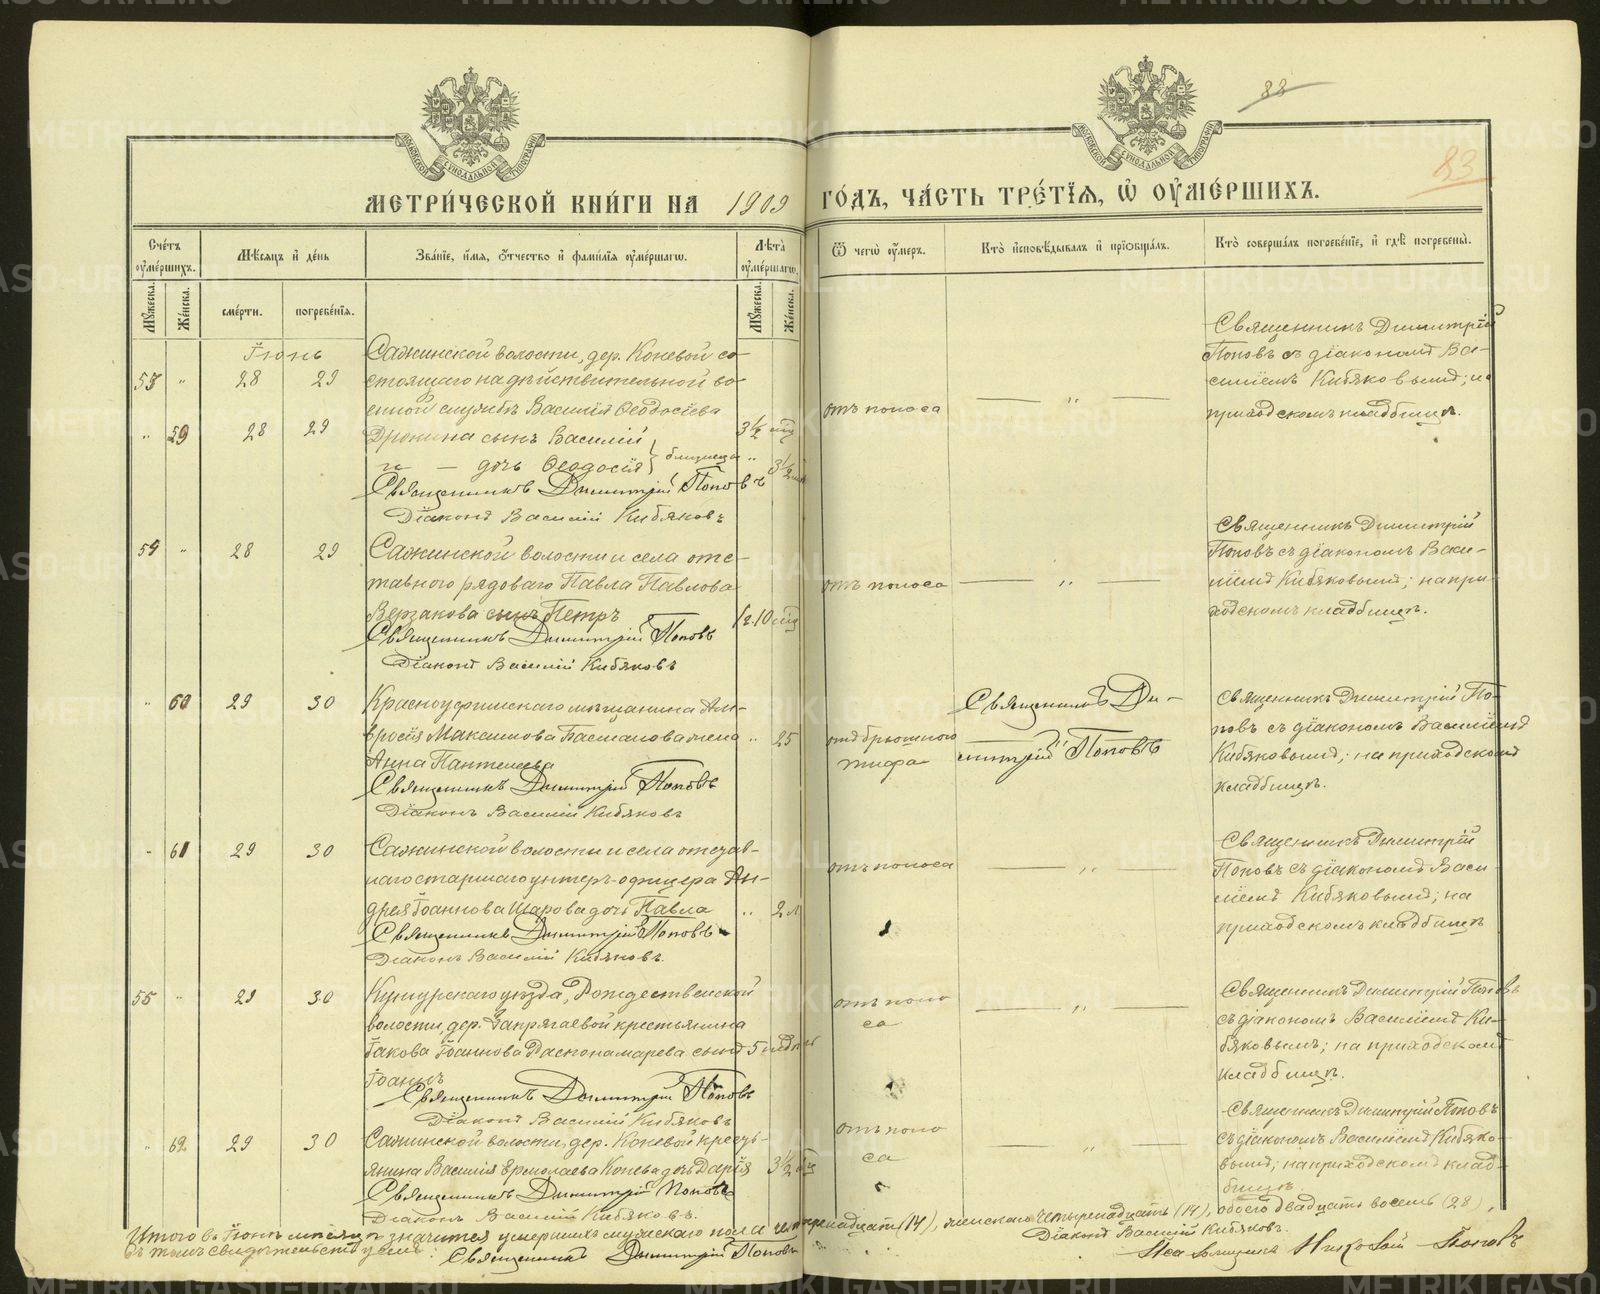 88
83
МЕТРИ́ЧЕСКОЙ КНИ́ГИ НА 1909 ГО́ДЪ, ЧА́СТЬ ТРЕ́ТЇЯ, Ѡ ОУМЕ́РШИХЪ.
Счетъ оумершихъ.
Мѣсяцъ и день
Званіе, имя, отчество и фамилія оумершагѡ.
Лѣта оумершагѡ.
Ѿ чегѡ оумеръ.
Кто исповѣдывалъ и пріобщалъ.
Кто совершалъ погребеніе, и гдѣ погребены.
Мужеска.
Женска.
смерти.
погребенія.
Мужеска.
Женска.
Іюнь
53 " 28 29
" 59 28 29
Сажинской волости, дер. Коневой со-
стоящаго на дѣйствительной во-
енной службѣ Василія Ѳеодосіева
Дронина сынъ Василій 3½ мц
и — дочь Ѳеодосія близнецы " 3½
Священникъ Димитрій Поповъ
Діаконъ Василій Кибяковъ
отъ поноса
— " —
Священникъ Димитрій
Поповъ съ діакономъ Ва-
силіемъ Кибяковымъ; на
приходскомъ кладбищѣ.
54 " 28 29
Сажинской волости и села отс-
тавного рядоваго Павла Павлова
Верзакова сынъ Петръ 1г. 10 мц
Священникъ Димитрій Поповъ
Діаконъ Василій Кибяковъ
отъ поноса
— " —
Священникъ Димитрій
Поповъ съ діакономъ Васи-
ліемъ Кибяковымъ; на при-
ходскомъ кладбищѣ.
" 60 29 30
Красноуфимскаго мѣщанина Ам-
вросія Максимова Пасманова жена " 25
Анна Пантелеева
Священникъ Димитрій Поповъ
Діаконъ Василій Кибяковъ
отъ брюшного
тифа
Священникъ Ди-
митрій Поповъ
Священникъ Димитрій По-
повъ съ діакономъ Василіемъ
Кибяковымъ; на приходскомъ
кладбищѣ.
" 61 29 30
Сажинской волости и села отстав-
наго старшаго унтеръ-офицера Ан-
дрея Іоаннова Шарова дочь Павла " 2 л
Священникъ Димитрій Поповъ
Діаконъ Василій Кибяковъ.
отъ поноса
— " —
Священникъ Димитрій
Поповъ съ діакономъ Васи-
ліемъ Кибяковымъ; на
приходскомъ кладбищѣ
55 " 29 30
Кунгурскаго уѣзда, Рождественской
волости, дер. Запрягаевой крестьянина
Іакова Іоаннова Распономарева сынъ 5
Іоаннъ
Священникъ Димитрій Поповъ
Діаконъ Василій Кибяковъ
отъ поно
са
— " —
Священникъ Димитрій Поповъ
съ діакономъ Василіемъ Ки-
бяковымъ; на приходскомъ
кладбищѣ.
" 62 29 30
Сажинской волости, дер. Коневой кресть-
янина Василія Ермолаева Конева дочь Дарія 3½ мц
Священникъ Димитрій Поповъ
Діаконъ Василій Кибяковъ.
отъ поно
са
— " —
Священникъ Димитрій Поповъ
съ діакономъ Василіемъ Кибяко-
вымъ; на приходскомъ клад-
бищѣ.
Итого въ Іюнѣ мѣсяцѣ значится умершихъ мужскаго пола четырнадцать (14), женскаго четырнадцать (14), обоего двадцать восемь (28),
въ томъ свидѣтельствуемъ: Священникъ Димитрій Поповъ
Діаконъ Василій Кибяковъ.
Псаломщикъ Николай Поповъ